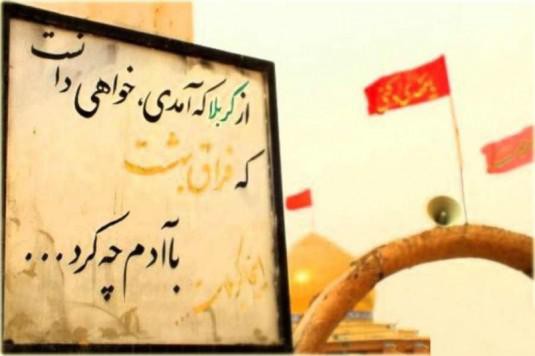 از کربلا که آمدی، خواهی دانست
که فراق بهشت
با آدم چه کرد...
اینجا کربلاست...